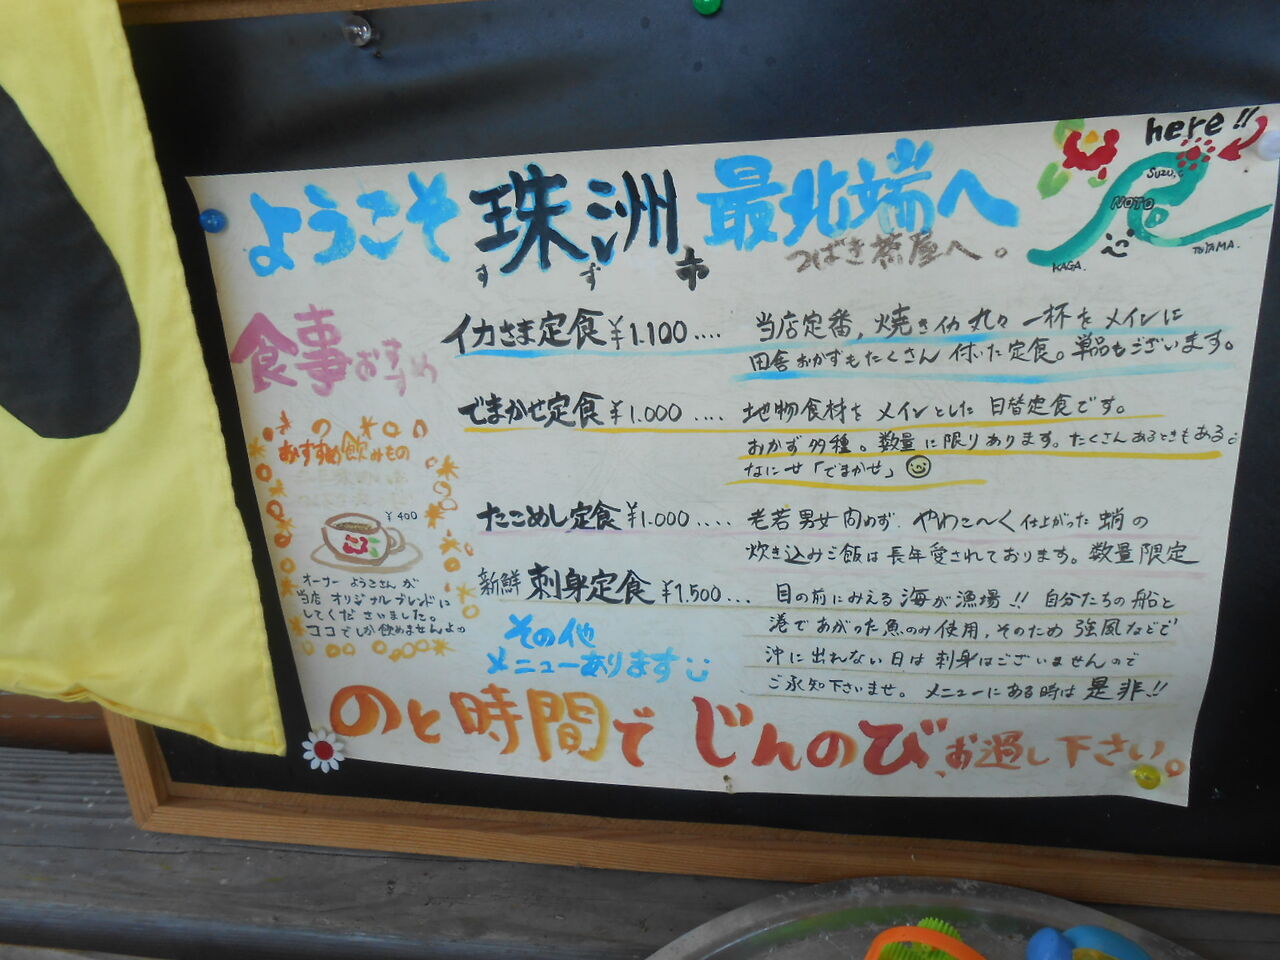 here!!
SUZU
NOTO
KAGA.
TOYAMA.
ようこそ 珠洲市 最北端へ
すず
つばき茶屋へ。
食事おすすめ
イカさま定食 ¥1.100....
当店定番, 焼きイカ丸々 一杯をメインに
田舎おかずもたくさん 付いた定食。単品もございます。
でまかせ定食 ¥1.000 ....
地物食材を メインとした 日替定食です。
おかず多種。数量に限りあります。たくさんあるときもある
なにせ「でまかせ」
たこめし定食 ¥1.000 ....
老若男女問わず. やわこ〜く仕上がった 蛸の
炊き込みご飯は長年愛されております。数量限定
新鮮 刺身定食 ¥1.500...
目の前にみえる 海が漁場!! 自分たちの船と
港であがった魚のみ使用, そのため 強風などで
沖に出れない日は 刺身はございませんので
ご承知下さいませ。 メニューにある時は 是非!!
おすすめ飲みもの
¥400
オーナー ようこさんが
当店 オリジナルブレンドに
してくださいました。
ココでしか飲めませんよ
その他
メニューあります
のと時間で じんのび、お過し下さい。